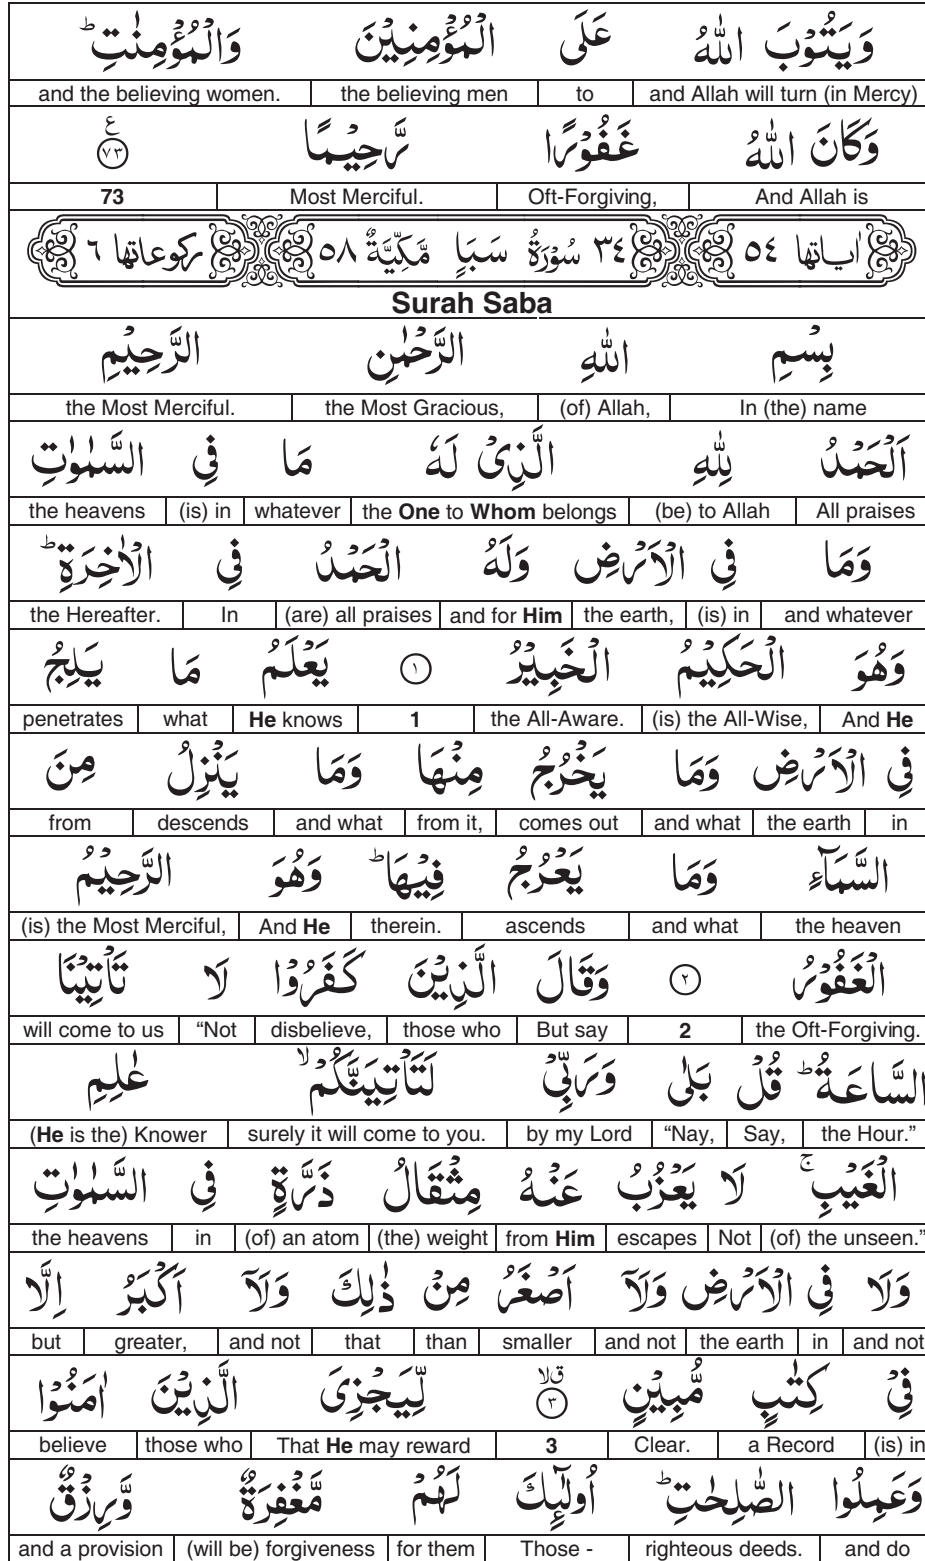 وَيَتُوْبَ اللّٰهُ عَلَى الْمُؤْمِنِيْنَ وَالْمُؤْمِنٰتِ ؕ
and the believing women. the believing men to and Allah will turn (in Mercy)
وَكَانَ اللّٰهُ غَفُوْرًا رَّحِيْمًا ع ٧٣
73 Most Merciful. Oft-Forgiving, And Allah is
اٰياتها ٥٤ ٣٤ سُوْرَةُ سَبَاٍ مَّكِّيَّةٌ ٥٨ ركوعاتها ٦
Surah Saba
بِسْمِ اللّٰهِ الرَّحْمٰنِ الرَّحِيْمِ
the Most Merciful. the Most Gracious, (of) Allah, In (the) name
اَلْحَمْدُ لِلّٰهِ الَّذِىْ لَهٗ مَا فِى السَّمٰوٰتِ
the heavens (is) in whatever the One to Whom belongs (be) to Allah All praises
وَمَا فِى الْاَرْضِ وَلَهُ الْحَمْدُ فِى الْاٰخِرَةِ ؕ
the Hereafter. In (are) all praises and for Him the earth, (is) in and whatever
وَهُوَ الْحَكِيْمُ الْخَبِيْرُ ١ يَعْلَمُ مَا يَلِجُ
penetrates what He knows 1 the All-Aware. (is) the All-Wise, And He
فِى الْاَرْضِ وَمَا يَخْرُجُ مِنْهَا وَمَا يَنْزِلُ مِنَ
from descends and what from it, comes out and what the earth in
السَّمَآءِ وَمَا يَعْرُجُ فِيْهَا ؕ وَهُوَ الرَّحِيْمُ
(is) the Most Merciful, And He therein. ascends and what the heaven
الْغَفُوْرُ ٢ وَقَالَ الَّذِيْنَ كَفَرُوْا لَا تَاْتِيْنَا
will come to us “Not disbelieve, those who But say 2 the Oft-Forgiving.
السَّاعَةُ ؕ قُلْ بَلٰى وَرَبِّىْ لَتَاْتِيَنَّكُمْ ۙ عٰلِمِ
(He is the) Knower surely it will come to you. by my Lord “Nay, Say, the Hour.”
الْغَيْبِ ۚ لَا يَعْزُبُ عَنْهُ مِثْقَالُ ذَرَّةٍ فِى السَّمٰوٰتِ
the heavens in (of) an atom (the) weight from Him escapes Not (of) the unseen.”
وَلَا فِى الْاَرْضِ وَلَاۤ اَصْغَرُ مِنْ ذٰلِكَ وَلَاۤ اَكْبَرُ اِلَّا
but greater, and not that than smaller and not the earth in and not
فِىْ كِتٰبٍ مُّبِيْنٍ ٣ قلا لِّيَجْزِىَ الَّذِيْنَ اٰمَنُوْا
believe those who That He may reward 3 Clear. a Record (is) in
وَعَمِلُوا الصّٰلِحٰتِ ؕ اُولٰٓئِكَ لَهُمْ مَّغْفِرَةٌ وَّرِزْقٌ
and a provision (will be) forgiveness for them Those - righteous deeds. and do